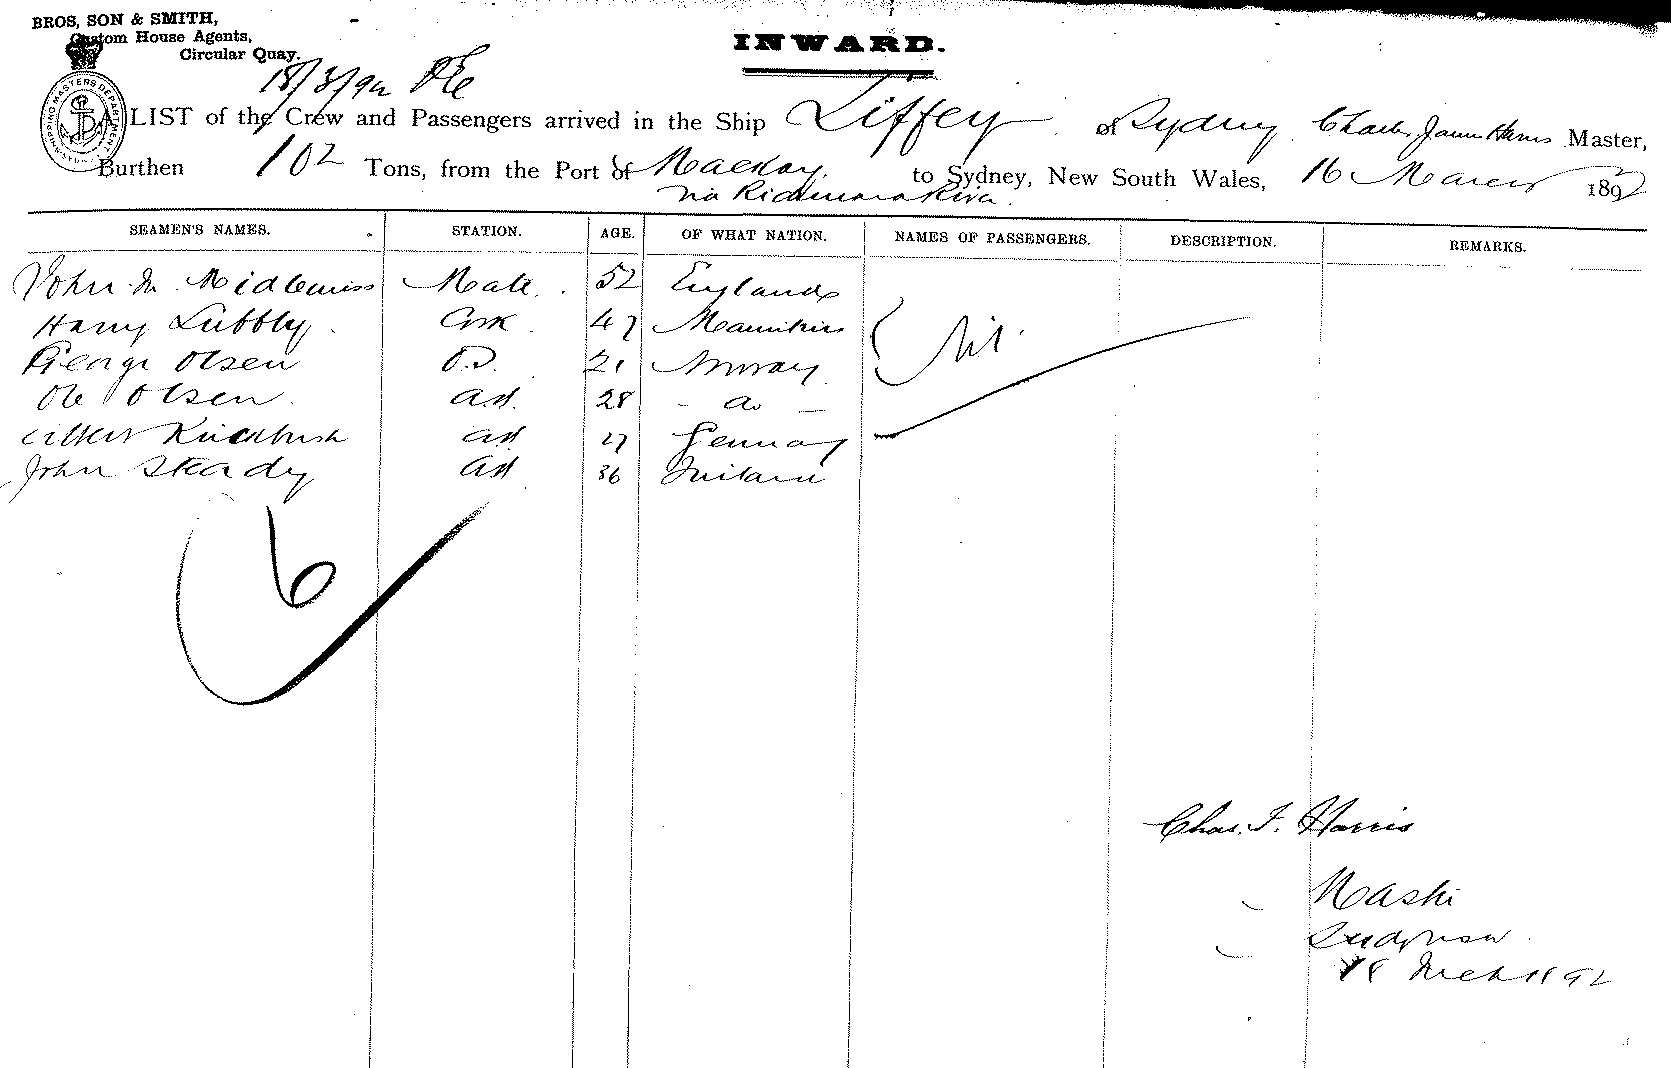 BROS, SON & SMITH,
Custom House Agents,
Circular Quay.
INWARD.
18/3/92
SHIPPING MASTERS DEPARTMENT
A LIST of the Crew and Passengers arrived in the Ship Liffey of Sydney Charles James Harris Master,
Burthen 102 Tons, from the Port of Mackay to Sydney, New South Wales, 16 March 1892
via
SEAMEN'S NAMES. STATION. AGE. OF WHAT NATION. NAMES OF PASSENGERS. DESCRIPTION. REMARKS.
John M Midlemiss Mate 52 England
Harry Lubbly Cook 47 Mauritius Nil
George Olsen O.S. 21 Norway
Ole Olsen AB. 28 - do -
AB 27 Germany
John Steady AB 36 Britain
6
Chas. J. Harris
Master
Sydney
18 March 1892